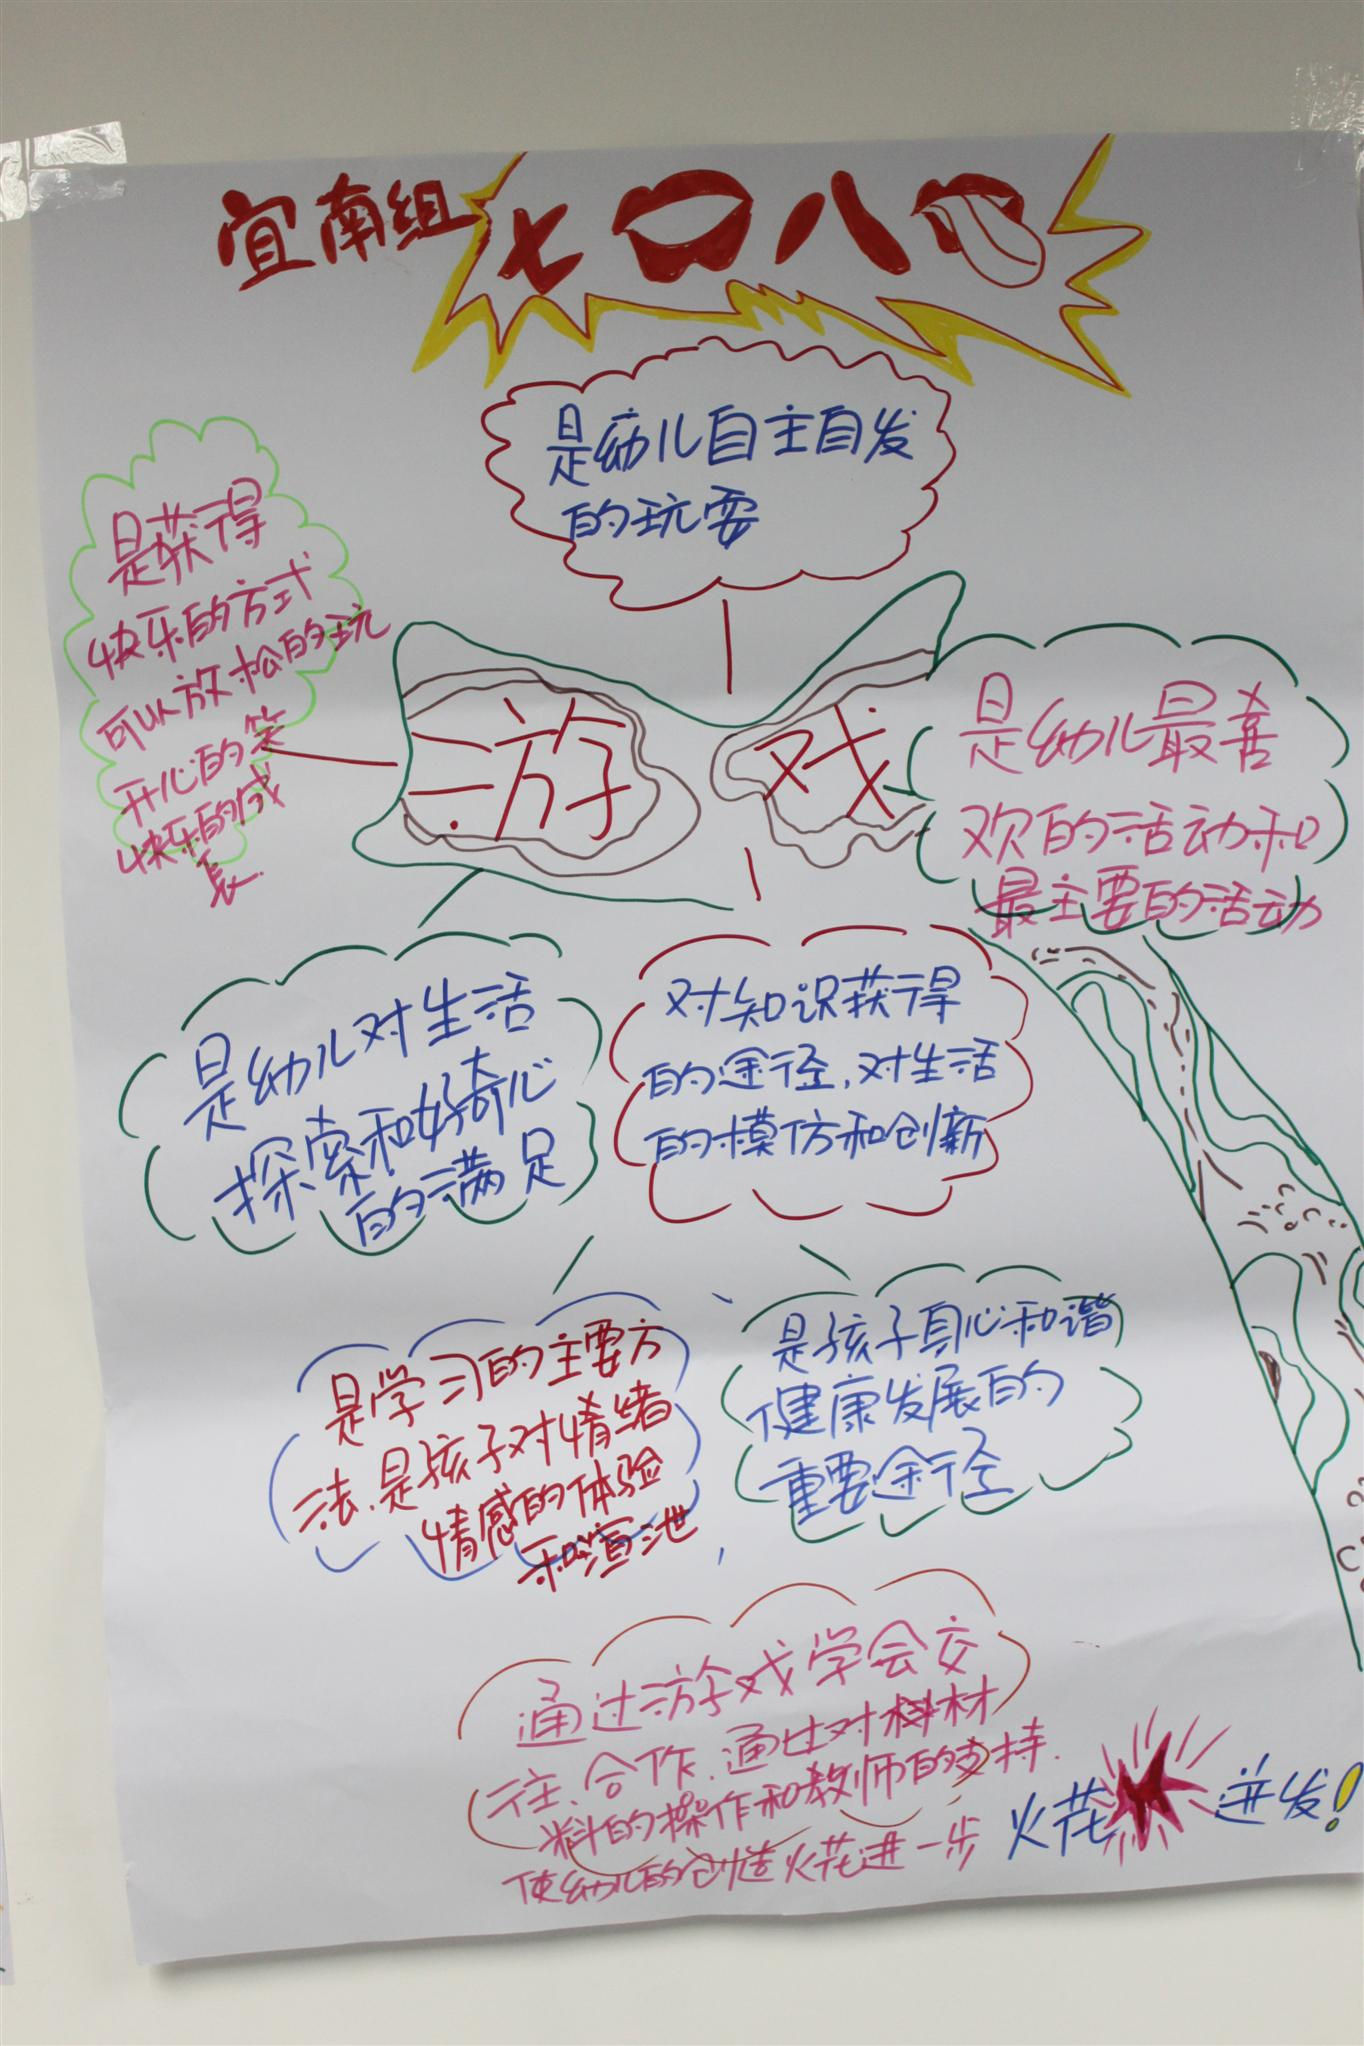 宜南组
七口八
是幼儿自主自发
的玩耍
是获得
快乐的方式
可以放松的玩
开心的笑
快乐的成
长.
游戏
是幼儿最喜
欢的活动和
最主要的活动
是幼儿对生活
探索和好奇心
的满足
对知识获得
的途径,对生活
的模仿和创新
是学习的主要方
法、是孩子对情绪
情感的体验
和渲泄
是孩子身心和谐
健康发展的
重要途径
通过游戏学会交
往、合作、通过对材
料的操作和教师的支持.
使幼儿的创造火花进一步
火花 迸发!